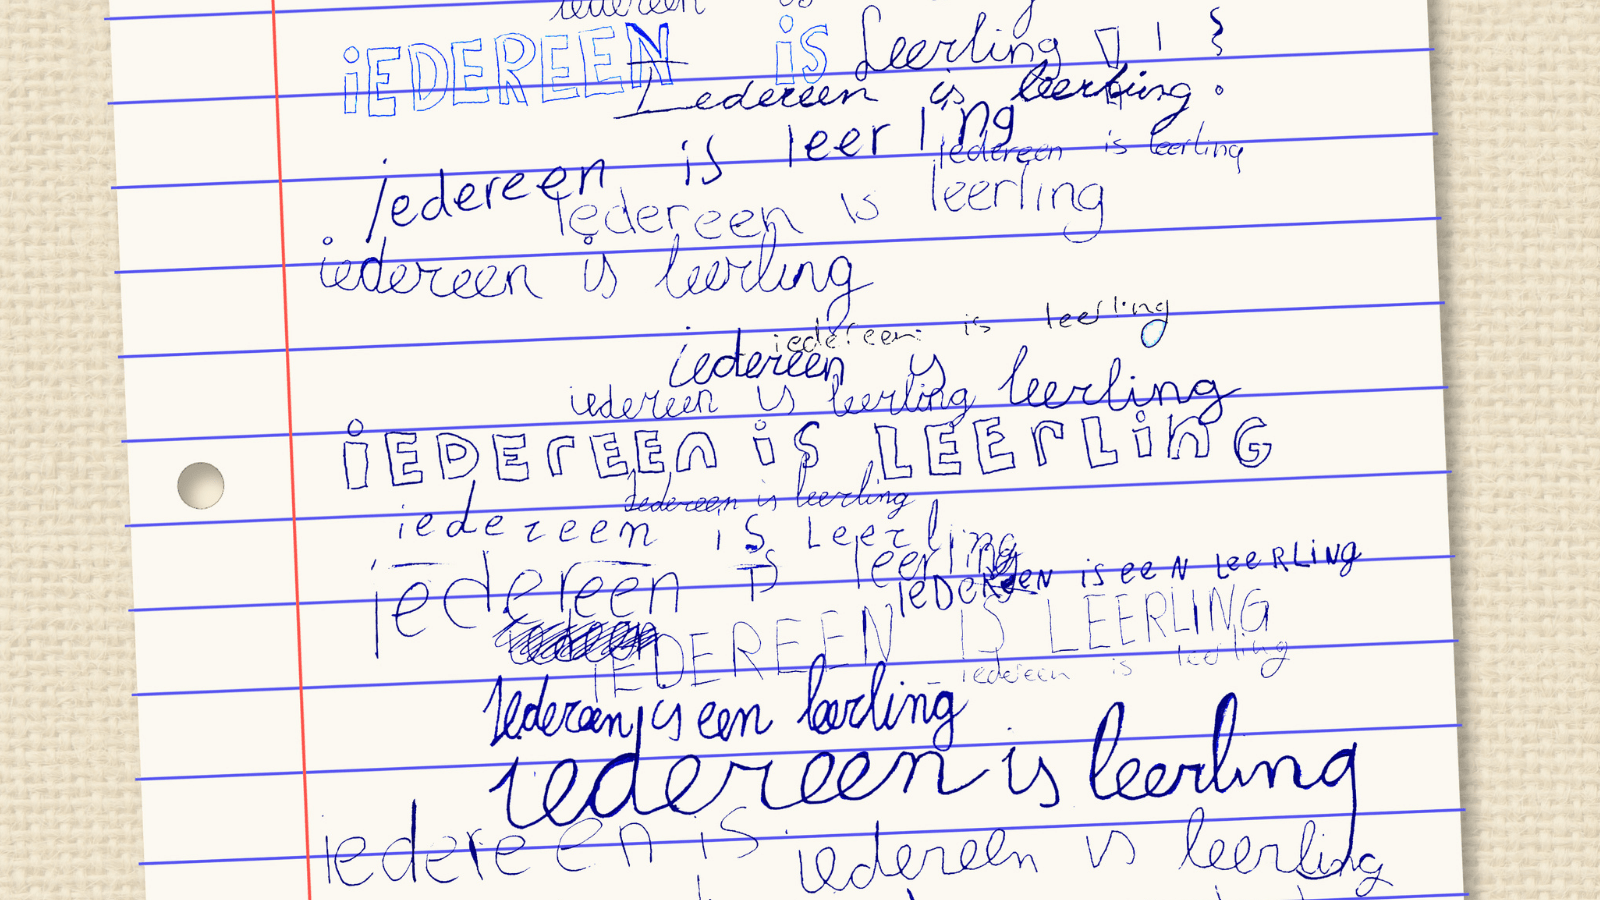 iedereen is
iEDEREEN iS Leerling
Iedereen is leerling.
iedereen is leerling
iedereen is leerling
Iedereen is leerling
iedereen is leerling
iedereen is leerling
iedereen is leerling
iedereen is leerling
iEDErEEn iS LEErLinG
Iedereen is leerling
iedereen is Leerling
iedereen is leerling
iEDEREEN is eeN LeeRLiNG
iedereen
iEDEREEN IS LEERLING
iedereen is leerling
Iedereen is een leerling
iedereen is leerling
iedereen is
iedereen is leerling